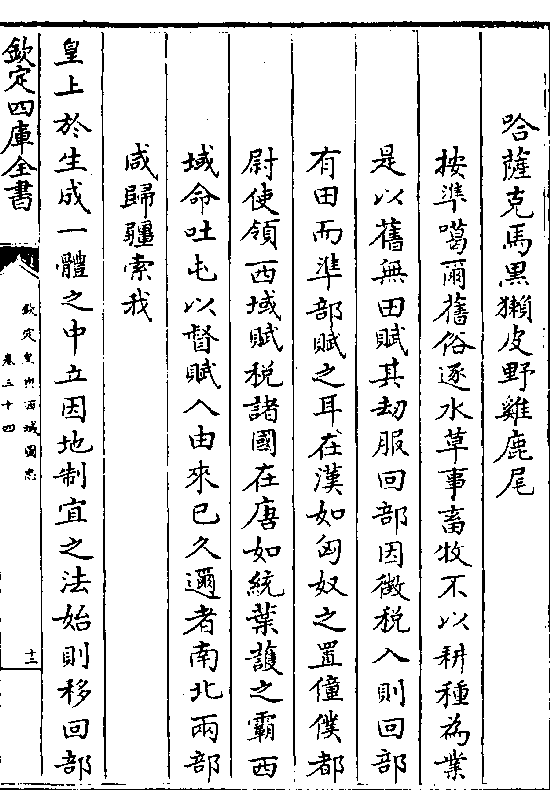 哈薩克馬黑獺皮野雞鹿尾
按準噶爾舊俗逐水草事畜牧不以耕種為業
是以舊無田賦其刧服回部因徵稅入則回部
有田而準部賦之耳在漢如匈奴之置僮僕都
尉使領西域賦稅諸國在唐如統葉護之霸西
域命吐屯以督賦入由來已久邇者南北兩部
咸歸疆索我
皇上於生成一體之中立因地制宜之法始則移回部
欽定四庫全書
欽定皇輿西域圖志
卷三十四
十三